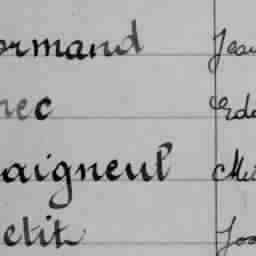 ormand Jean
nec Edo
aigneul Mic
etit Jos